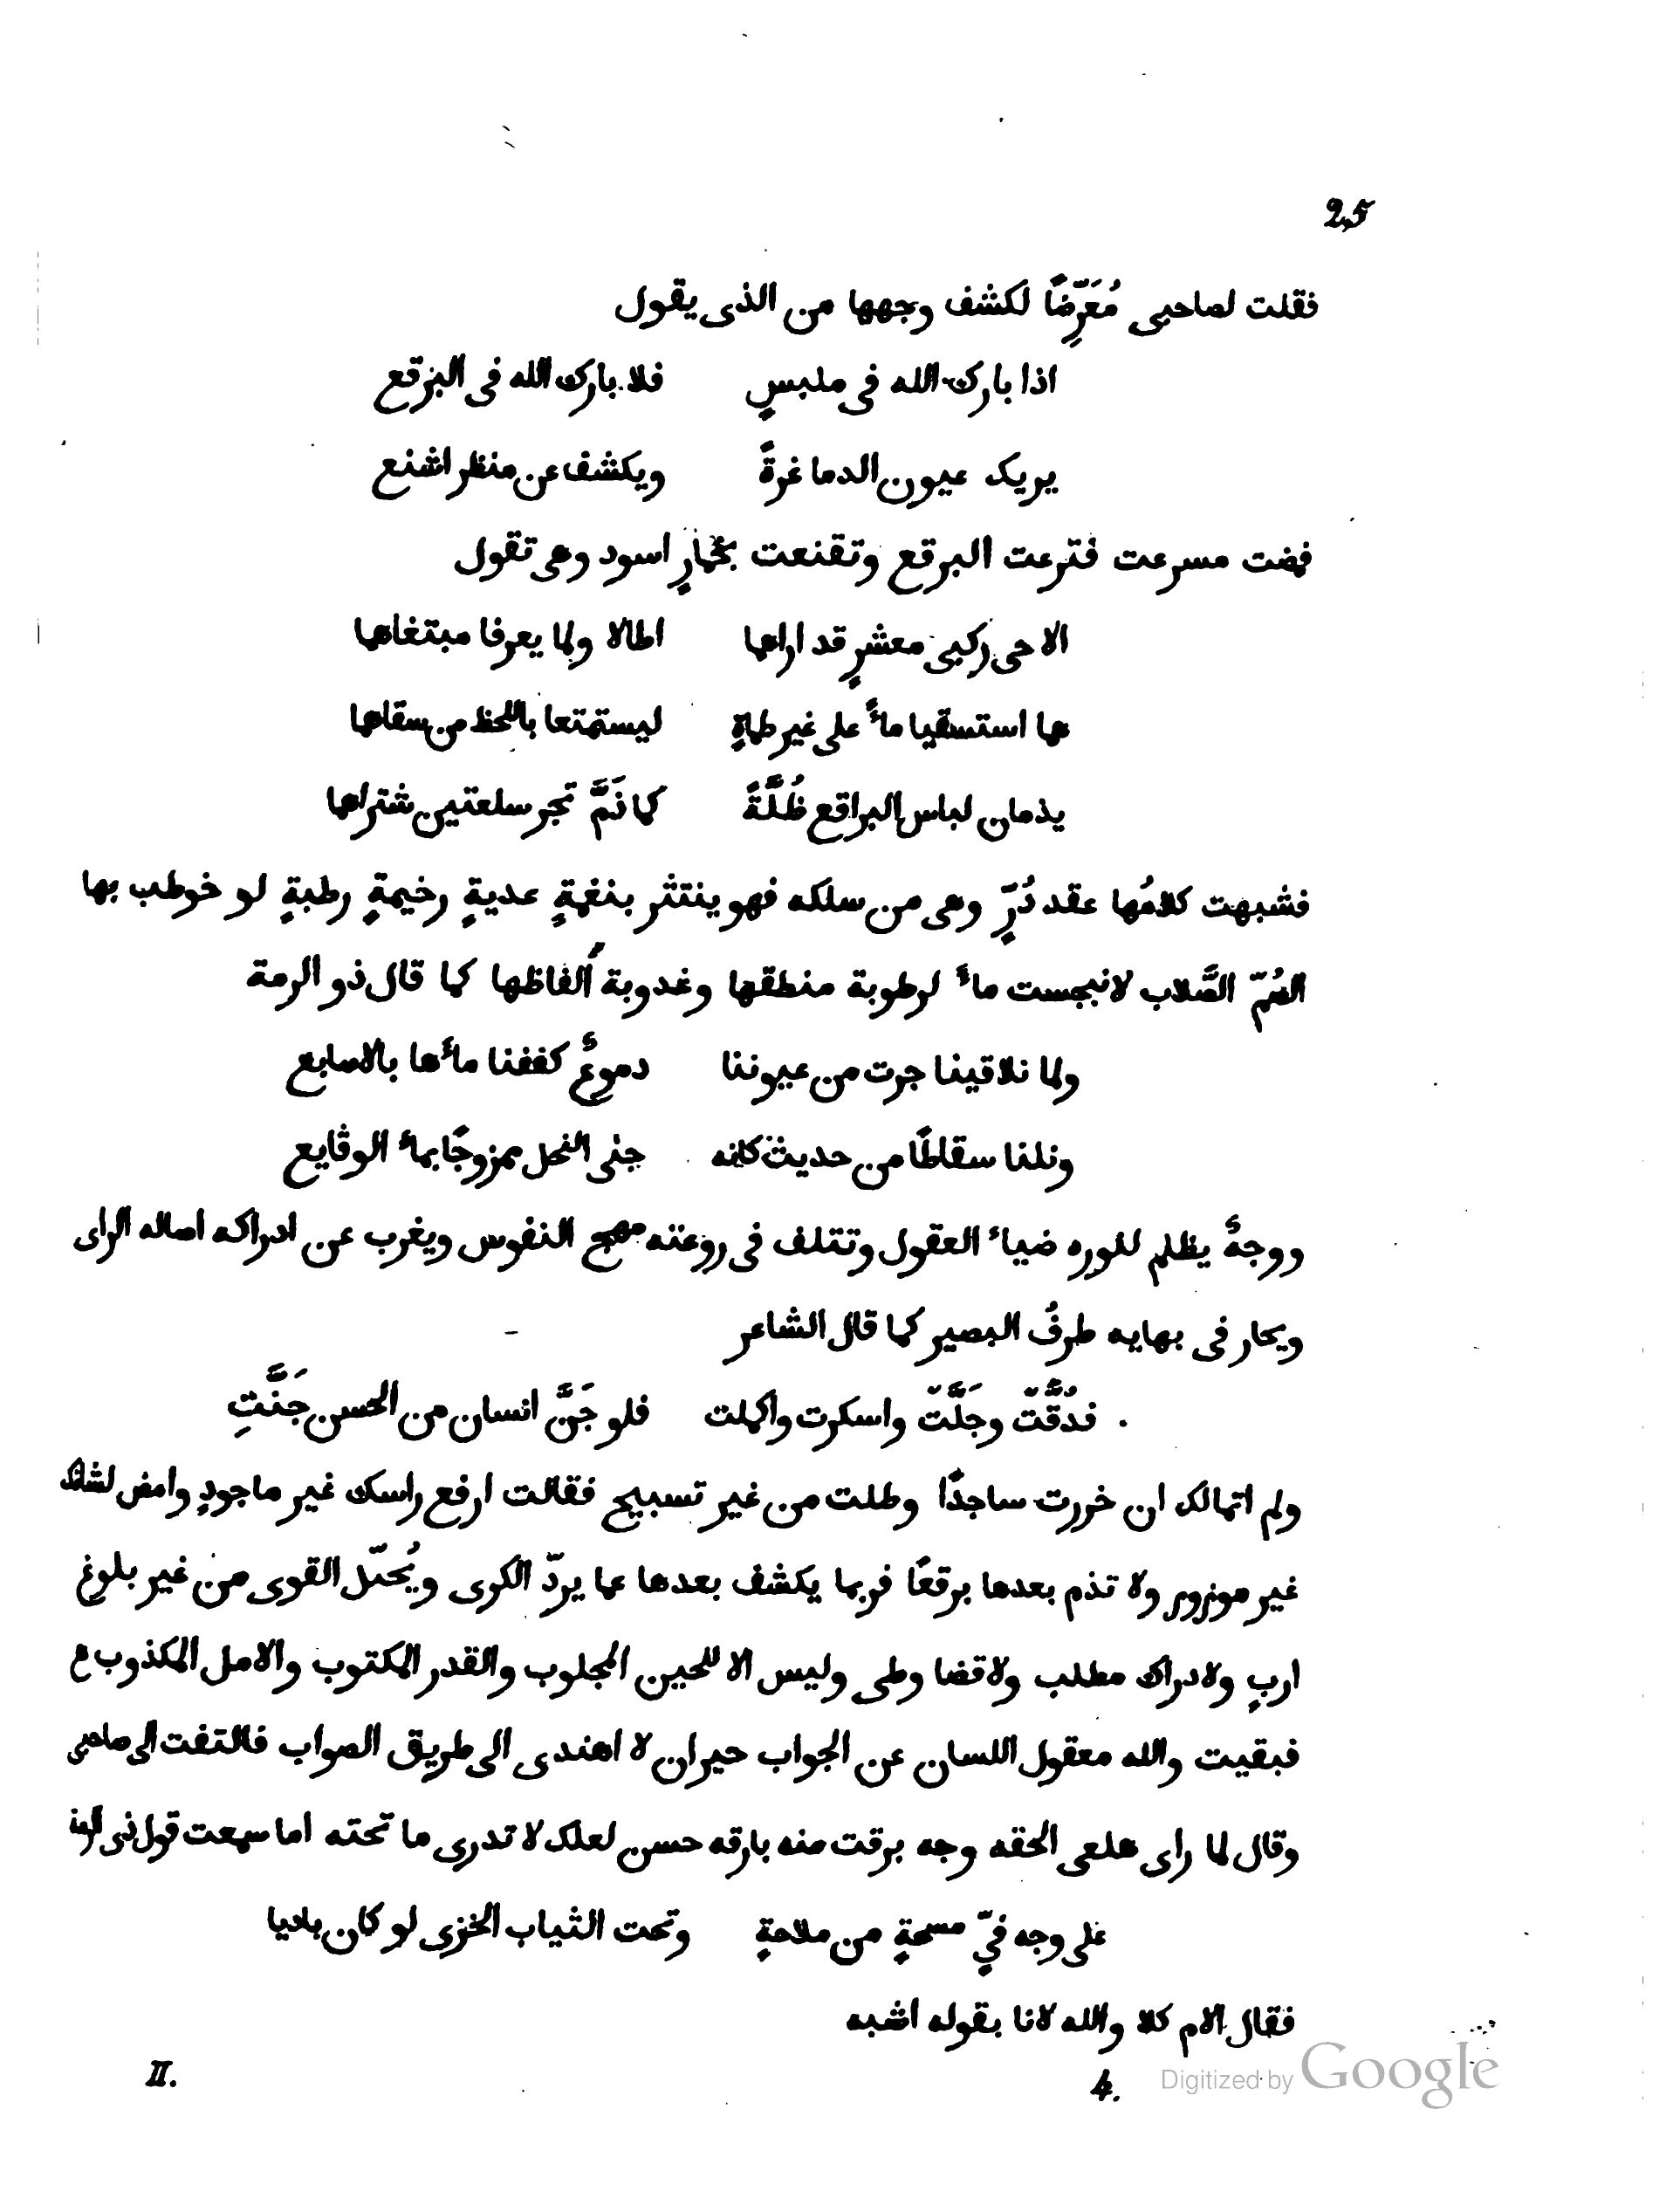 25
فقلت لصاحبى مُعَرِّضًا لكشف وجهها من الذى يقول
اذا بارك الله فى ملبسٍ فلا بارك الله فى البرقع
يريك عيون الدما غرةً ويكشف عن منظر اشنع
فمضت مسرعت فنزعت البرقع وتقنعت بخمارٍ اسود وهى تقول
الا حى ركبى معشرٍ قد اراهما اطالا ولما يعرفا مبتغاهما
هما استسقيا ماءً على غير ظماةٍ ليستمتعا باللحظ من سقاهما
يذمان لباس البراقع ظُلَّةً كما ذَمَّ تجر سلعتين شتراهما
فشبهت كلامُها عقد دُرٍّ وهى من سلكه فهو ينتثر بنغمةٍ عدبةٍ رخيمةٍ رطبةٍ لو خوطب بها
الصُمّ الصَّلاب لانبجست ماءً لرطوبة منطقها وغدوبة ألفاظها كما قال ذو الرمة
ولما تلاقينا جرت من عيوننا دموعٌ كففنا ماءها بالاصابع
ونلنا سقاطًا من حديث كانه جنى النحل ممزوجًا بماء الوقايع
ووجهٌ يظلم لنوره ضياء العقول وتتلف فى روعته مهج النفوس ويغرب عن ادراكه اصاله الراى
ويحار فى بهايه طرفُ البصير كما قال الشاعر
فدُقَّتْ وجَلَّتْ واسكرت واكملت فلو جَنَّ انسان من الحسن جَنَّتِ
ولم اتمالك ان خررت ساجدًا وطلت من غير تسبيح فقالت ارفع راسك غير ماجودٍ وامض لشانك
غير موزور ولا تذم بعدها برقعًا فربما يكشف بعدها عما يردّ الكرى ويُحتّل القوى من غير بلوغ
اربٍ ولادراك مطلب ولا قضا وطى وليس الا للحين المجلوب والقدر المكتوب والامل المكذوب
فبقيت والله معقول اللسان عن الجواب حيران لا اهتدى الى طريق الصواب فالتفت الى صاحبى
وقال لما راى هلعى الحقه وجه برقت منه بارقه حسن لعلك لا تدرى ما تحته اما سمعت قول ذى الرمة
على وجه فىّ مسحةٍ من ملاحةٍ وتحت الثياب الخزى لو كان باديا
فقال الام كلا والله لانا بقوله اشبه
II.
4.
Digitized by Google